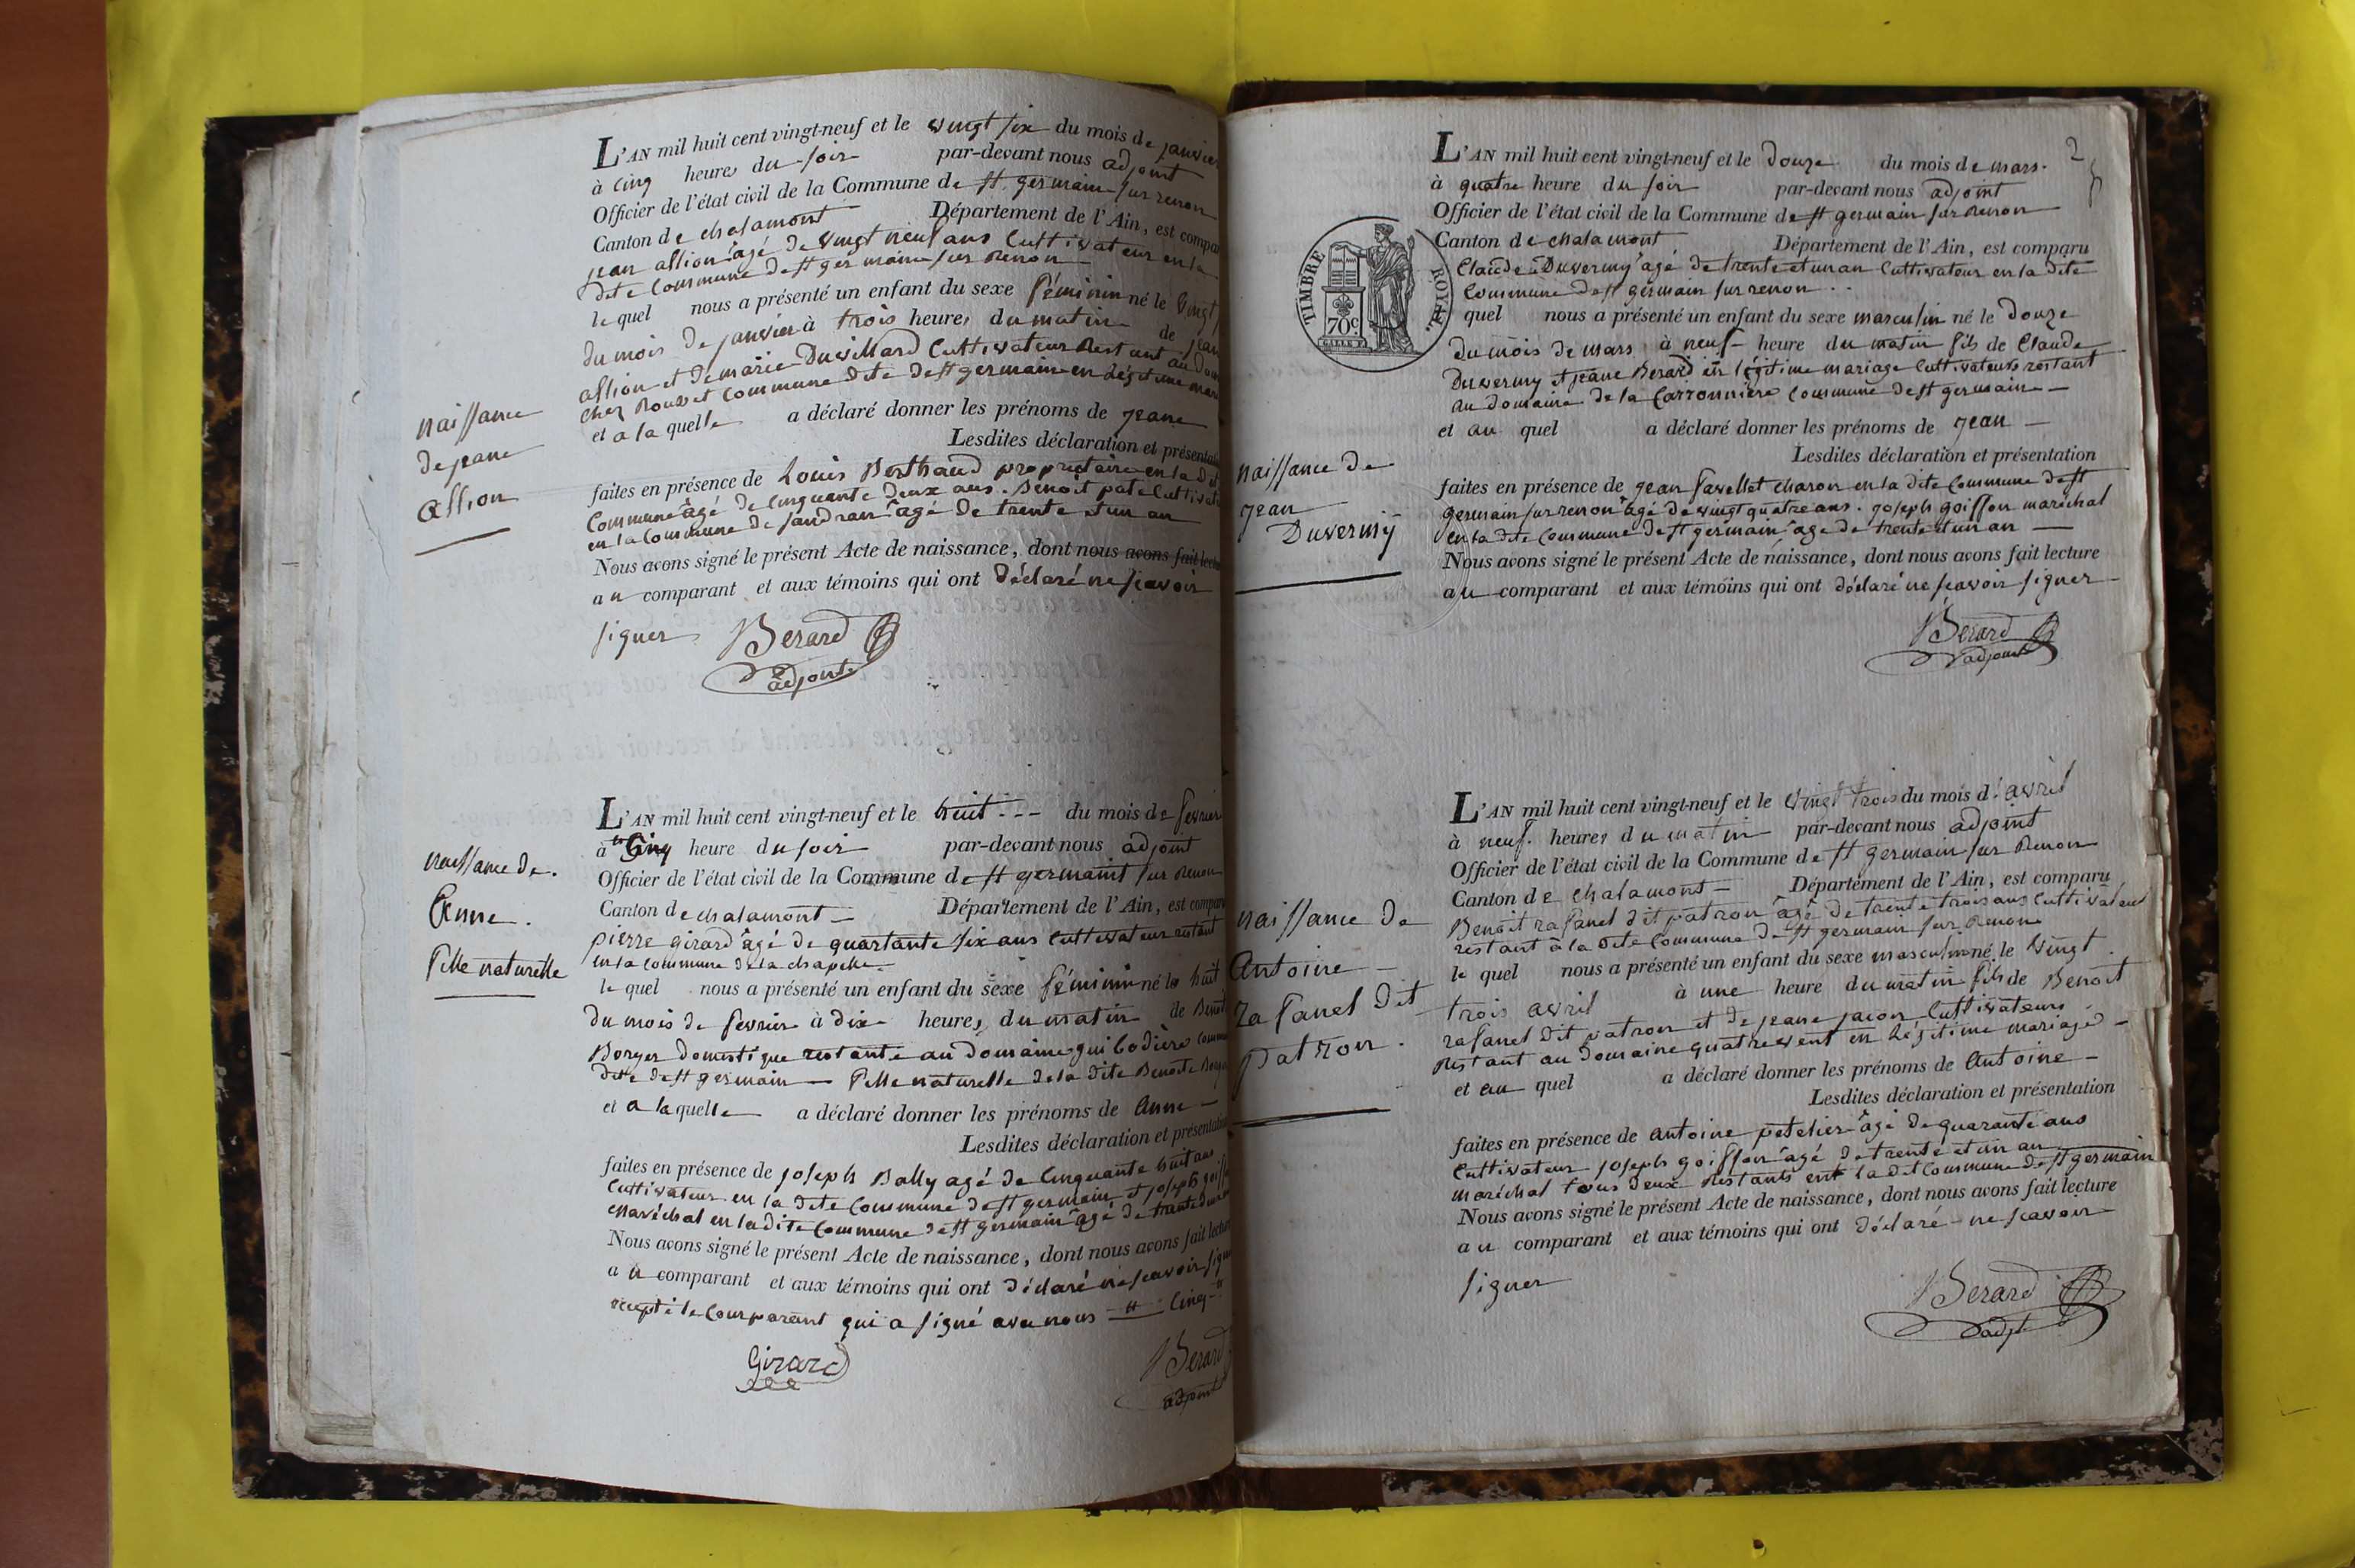 L'AN mil huit cent vingt-neuf et le vingt six du mois de janvier
à cinq heures du soir par-devant nous adjoint
Officier de l'état civil de la Commune de st germain sur renon
Canton de chalamont Département de l'Ain, est compa
jean allion âgé de vingt neuf ans Cultivateur en la
dite Commune de st germain sur Renon
le quel nous a présenté un enfant du sexe féminin né le vingt
du mois de janvier à trois heures du matin de jean
allion et de marie Duvillard Cultivateur Restant au dom
chez Rouvet Commune dite de st germain en Légitime mari
et a la quelle a déclaré donner les prénoms de jeane
Lesdites déclaration et présentati
faites en présence de Louis Berthaud propriétaire en la dit
Commune âgé de Cinquante deux ans. Benoit Cultivat
en la commune de sandran âgé de trente et un an
Nous avons signé le présent Acte de naissance, dont nous avons fait lectu
au comparant et aux témoins qui ont déclaré ne scavoir
signer Berard
adjoint
naissance
de jeane
allion
L'AN mil huit cent vingt-neuf et le huit du mois de fevrier
à Cinq heure du soir par-devant nous adjoint
Officier de l'état civil de la Commune de st germaint sur Renon
Canton de chalamont Département de l'Ain, est compar
pierre girard âgé de quartante six ans Cultivateur restant
en la commune de la chapelle
le quel nous a présenté un enfant du sexe féminin né le huit
du mois de fevrier à dix heures du matin de Benoit
Boryer Domestique restante au domaine commu
dite de st germain fille naturelle de la dite Benoite Bory
et a la quelle a déclaré donner les prénoms de Anne
Lesdites déclaration et présentation
faites en présence de joseph Bally agé de Cinquante huit ans
Cultivateur en la dite Commune de st germain et joseph goiff
Maréchal en la dite Commune de st germain âgé de trante
Nous avons signé le présent Acte de naissance, dont nous avons fait lectur
au comparant et aux témoins qui ont déclaré ne scavoir sign
le Comparant qui a signé avec nous Cinq
Girard Berard
adjoint
naissance de.
Anne.
fille naturelle
2
L'AN mil huit cent vingt-neuf et le Douze du mois de mars.
à quatre heure du soir par-devant nous adjoint
Officier de l'état civil de la Commune de st germain sur Renon
Canton de chalamont Département de l'Ain, est comparu
Claude Duverniy âgé de trente et un an Cultivateur en la dite
Commune de st germain sur renon..
quel nous a présenté un enfant du sexe masculin né le Douze
du mois de mars à neuf heure du matin fils de Claude
Duverniy et jeane Berard en légitime mariage Cultivateurs restant
au domaine de la Carronnière Commune de st germain
et au quel a déclaré donner les prénoms de jean
Lesdites déclaration et présentation
faites en présence de jean favellet charon en la dite Commune de st
germain sur renon âgé de vingt quatre ans. joseph goiffon maréchal
en la dite Commune de st germain, âge de trente et un an
Nous avons signé le présent Acte de naissance, dont nous avons fait lecture
au comparant et aux témoins qui ont déclaré ne scavoir signer
Berard
adjoint
TIMBRE ROYAL.
70c.
naissance de
jean
Duverniÿ
L'AN mil huit cent vingt-neuf et le vingt trois du mois d'avril
à neuf heures du matin par-devant nous adjoint
Officier de l'état civil de la Commune de st germain sur Renon
Canton de chalamont Département de l'Ain, est comparu
Benoit rafanel dit patron âgé de trente trois ans Cultivateur
restant à la dite Commune de st germain sur Renon
le quel nous a présenté un enfant du sexe masculin né le vingt
trois avril à une heure du matin fils de Benoit
rafanel dit patron et de jeane jacon Cultivateurs
Restant au domaine quatrevent en Légitime mariage
et au quel a déclaré donner les prénoms de Antoine
Lesdites déclaration et présentation
faites en présence de antoine petelier âgé de quarante ans
Cultivateur joseph goiffon âgé de trente et un an
maréchal tous deux Restants ent la dit Commune de st germain
Nous avons signé le présent Acte de naissance, dont nous avons fait lecture
au comparant et aux témoins qui ont déclaré ne scavoir
signer Berard
adjt
naissance de
Antoine
rafanel dit
patron.